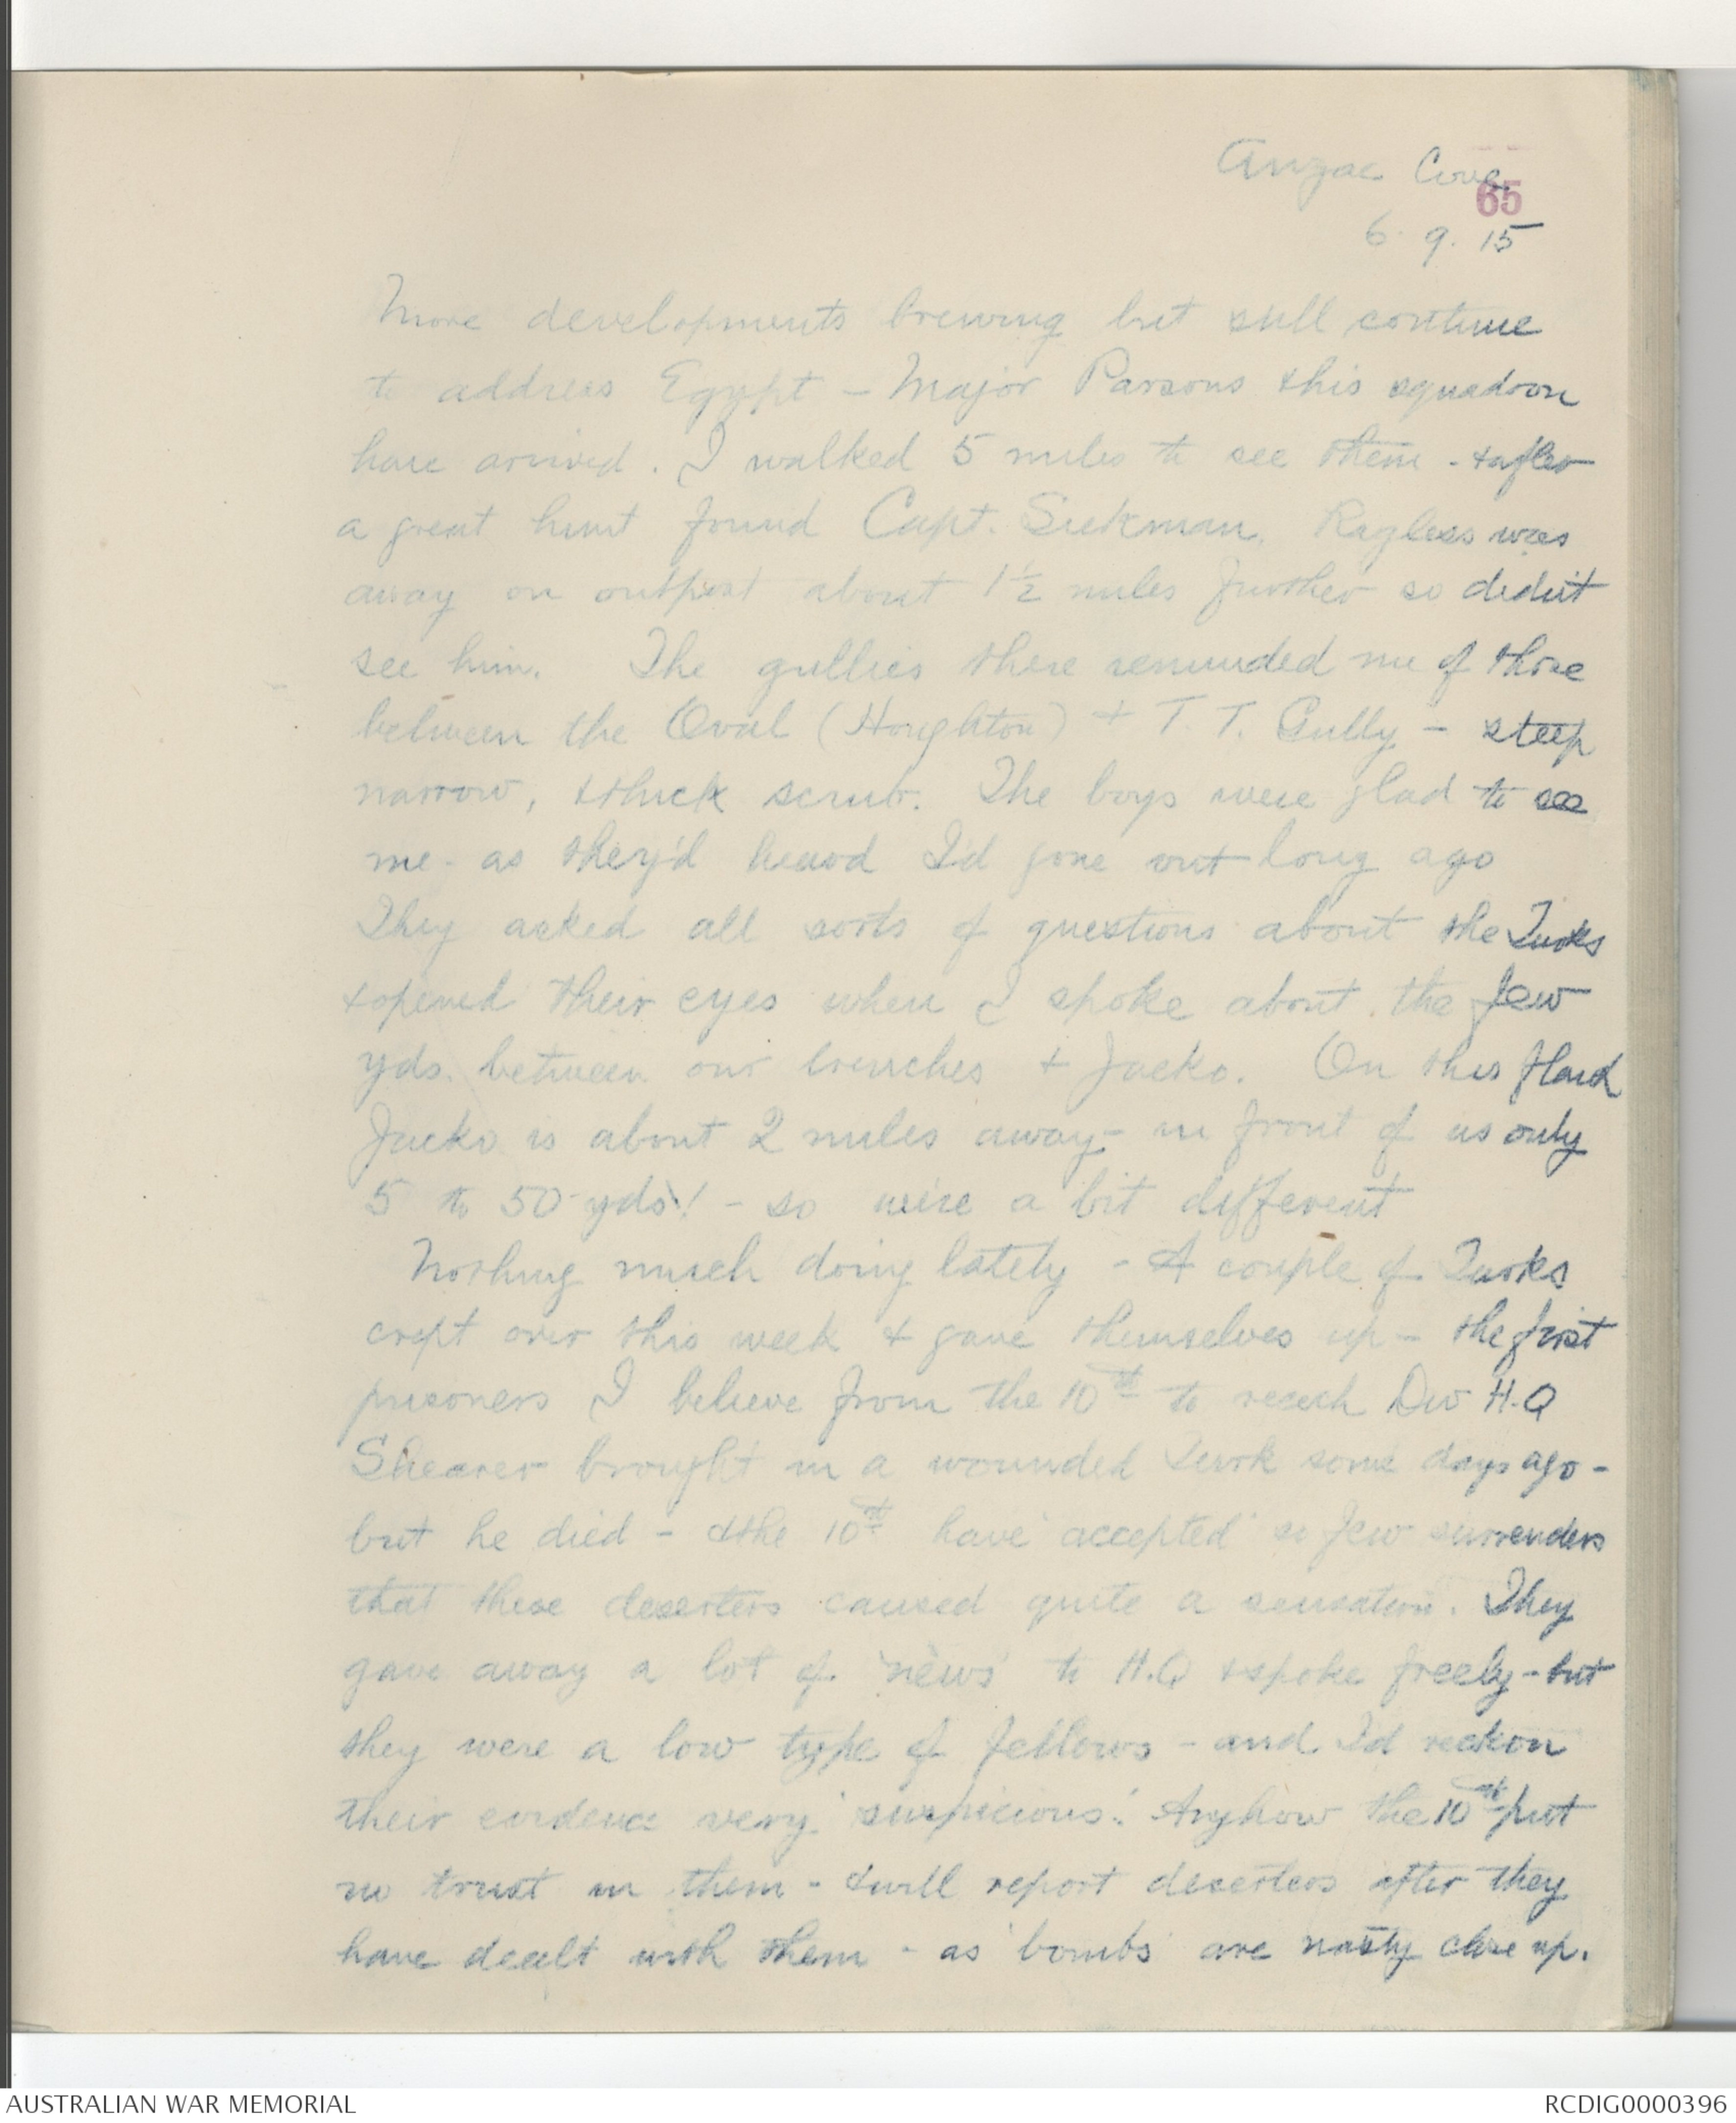 Anzac Cove
65
6. 9. 15
More developments brewing but still continue
to address Egypt - Major Parsons & his squadron
have arrived. I walked 5 miles to see them - & after
a great hunt found Capt. Siekman. Ragless was
away on outpost about 1½ miles further so didn't
see him. The gullies there reminded me of those
between the Oval (Houghton) + T. T. Gully - steep
narrow, & thick scrub. The boys were glad to see
me - as they'd heard I'd gone out long ago
They asked all sorts of questions about the Turks
& opened their eyes when I spoke about the few
yds. between our trenches + Jacko. On this fland
Jacko is about 2 miles away - in front of us only
5 to 50 yds! - so we're a bit different
Nothing much doing lately - A couple of Turks
crept over this week & gave themselves up - the first
prisoners I believe from the 10th to reach Div H.Q
Shearer brought in a wounded Turk some days ago -
but he died - & the 10th have 'accepted' so few surrenders
that these deserters caused quite a sensation. They
gave away a lot of 'news' to H.Q & spoke freely - but
they were a low type of fellows - and I'd reckon
their evidence very 'suspicious.' Anyhow the 10th put
no trust in them - & will report deserters after they
have dealt with them - as 'bombs' are nasty close up.
AUSTRALIAN WAR MEMORIAL
RCDIG0000396